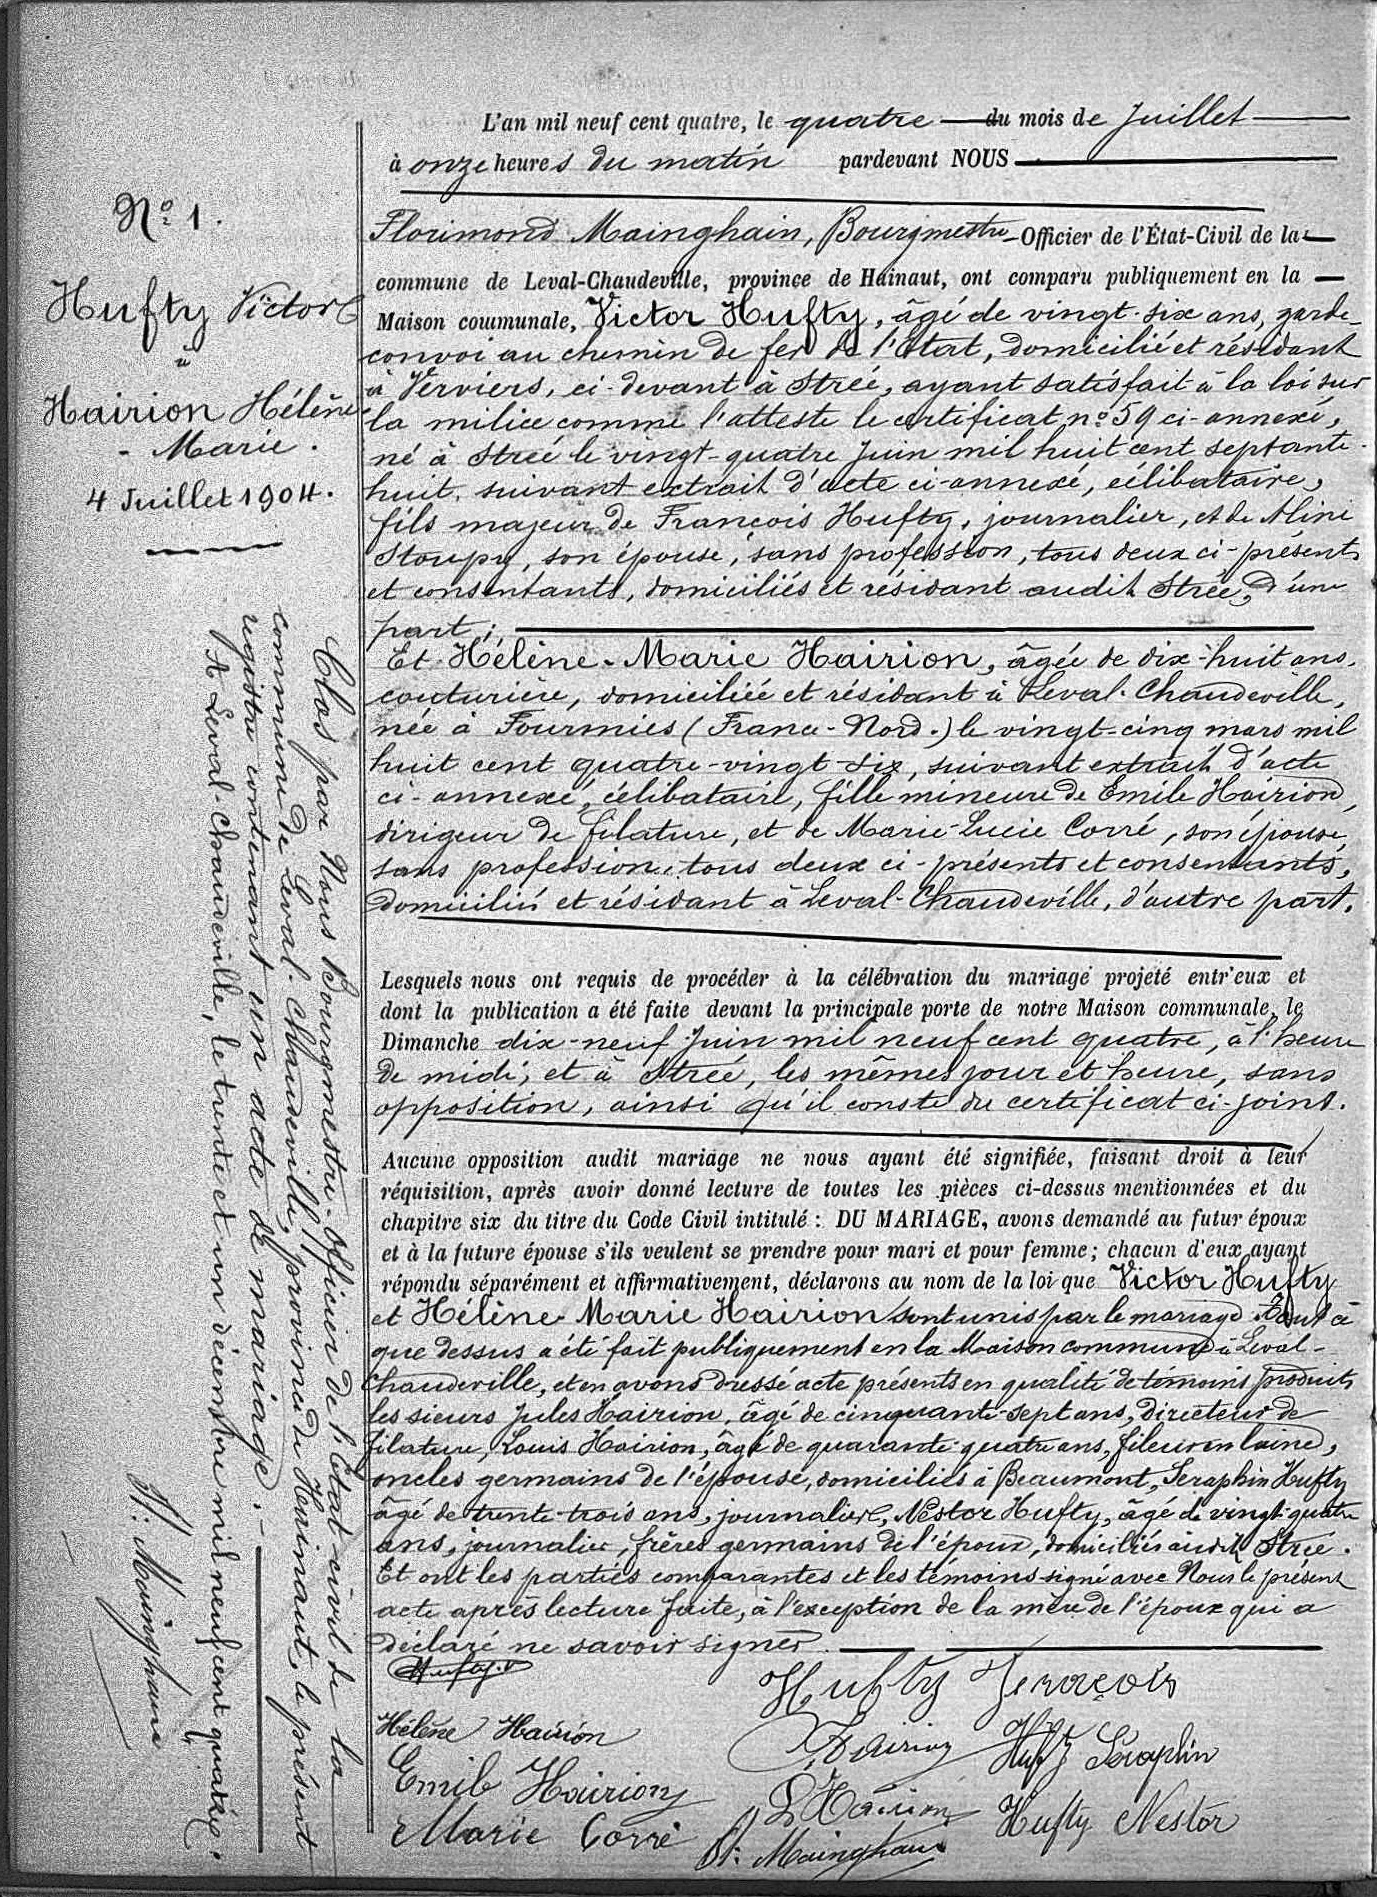 L'an mil neuf cent quatre, le quatre du mois de Juillet
à onze heures du matin pardevant NOUS
Florimond Mainghain, Bourgmestre Officier de l'État-Civil de la
commune de Leval-Chaudeville, province de Hainaut, ont comparu publiquement en la
Maison communale, Victor Hufty, âgé de vingt-six ans, garde-
convoi au chemin de fer de l'Etat, domicilié et résidant
à Verviers, ci-devant à Strée, ayant satisfait à la loi sur
la milice comme l'atteste le certificat n° 59 ci-annexé,
né à Strée le vingt-quatre Juin mil huit cent septante-
huit, suivant extrait d'acte ci-annexé, célibataire,
fils majeur de François Hufty, journalier, et de Aline
Stoupy, son épouse, sans profession, tous deux ci-présents
et consentants, domiciliés et résidant audit Strée, d'une
part;
Et Hélène-Marie Hairion, âgée de dix-huit ans,
couturière, domiciliée et résidant à Leval-Chaudeville,
née à Fourmies (France-Nord.) le vingt-cinq mars mil
huit cent quatre-vingt-six, suivant extrait d'acte
ci-annexé, célibataire, fille mineure de Emile Hairion,
dirigeur de filature, et de Marie-Lucie Corré, son épouse,
sans profession, tous deux ci-présents et consentants,
domiciliés et résidant à Leval-Chaudeville, d'autre part.
Lesquels nous ont requis de procéder à la célébration du mariage projeté entr'eux et
dont la publication a été faite devant la principale porte de notre Maison communale, le
Dimanche dix-neuf Juin mil neuf cent quatre, à l'heure
de midi, et à Strée, les mêmes jour et heure, sans
opposition, ainsi qu'il conste du certificat ci-joint.
Aucune opposition audit mariage ne nous ayant été signifiée, faisant droit à leur
réquisition, après avoir donné lecture de toutes les pièces ci-dessus mentionnées et du
chapitre six du titre du Code Civil intitulé : DU MARIAGE, avons demandé au futur époux
et à la future épouse s'ils veulent se prendre pour mari et pour femme; chacun d'eux ayant
répondu séparément et affirmativement, déclarons au nom de la loi que Victor Hufty
et Hélène Marie Hairion sont unis par le mariage. Tout ce
que dessus a été fait publiquement en la Maison commune à Leval-
Chaudeville, et en avons dressé acte présents en qualité de témoins produits
les sieurs Jules Hairion, âgé de cinquante-sept ans, Directeur de
filature, Louis Hairion, âgé de quarante-quatre ans, fileur en laine,
oncles germains de l'épouse, domiciliés à Beaumont, Seraphin Hufty
âgé de trente-trois ans, journalier, Nestor Hufty, âgé de vingt-quatre
ans, journalier, frères germains de l'époux, domiciliés audit Strée.
Et ont les parties comparantes et les témoins signé avec Nous le présent
acte après lecture faite, à l'exception de la mère de l'époux qui a
déclaré ne savoir signer.
Hufty. V
Hufty
Hélène Hairion
Hairion
Hufty Séraphin
Emile Hairion
L Hairion
Hufty Nestor
Marie Corré
Fl: Mainghain
N° 1.
Hufty Victor
à
Hairion Hélène
- Marie.
4 Juillet 1904.
Clos par Nous Bourgmestre-Officier de l'Etat-civil de la
commune de Leval-Chaudeville, province de Hainaut, le présent
registre contenant un acte de mariage.
A Leval-Chaudeville, le trente et un décembre mil neuf cent quatre.
Fl: Mainghain